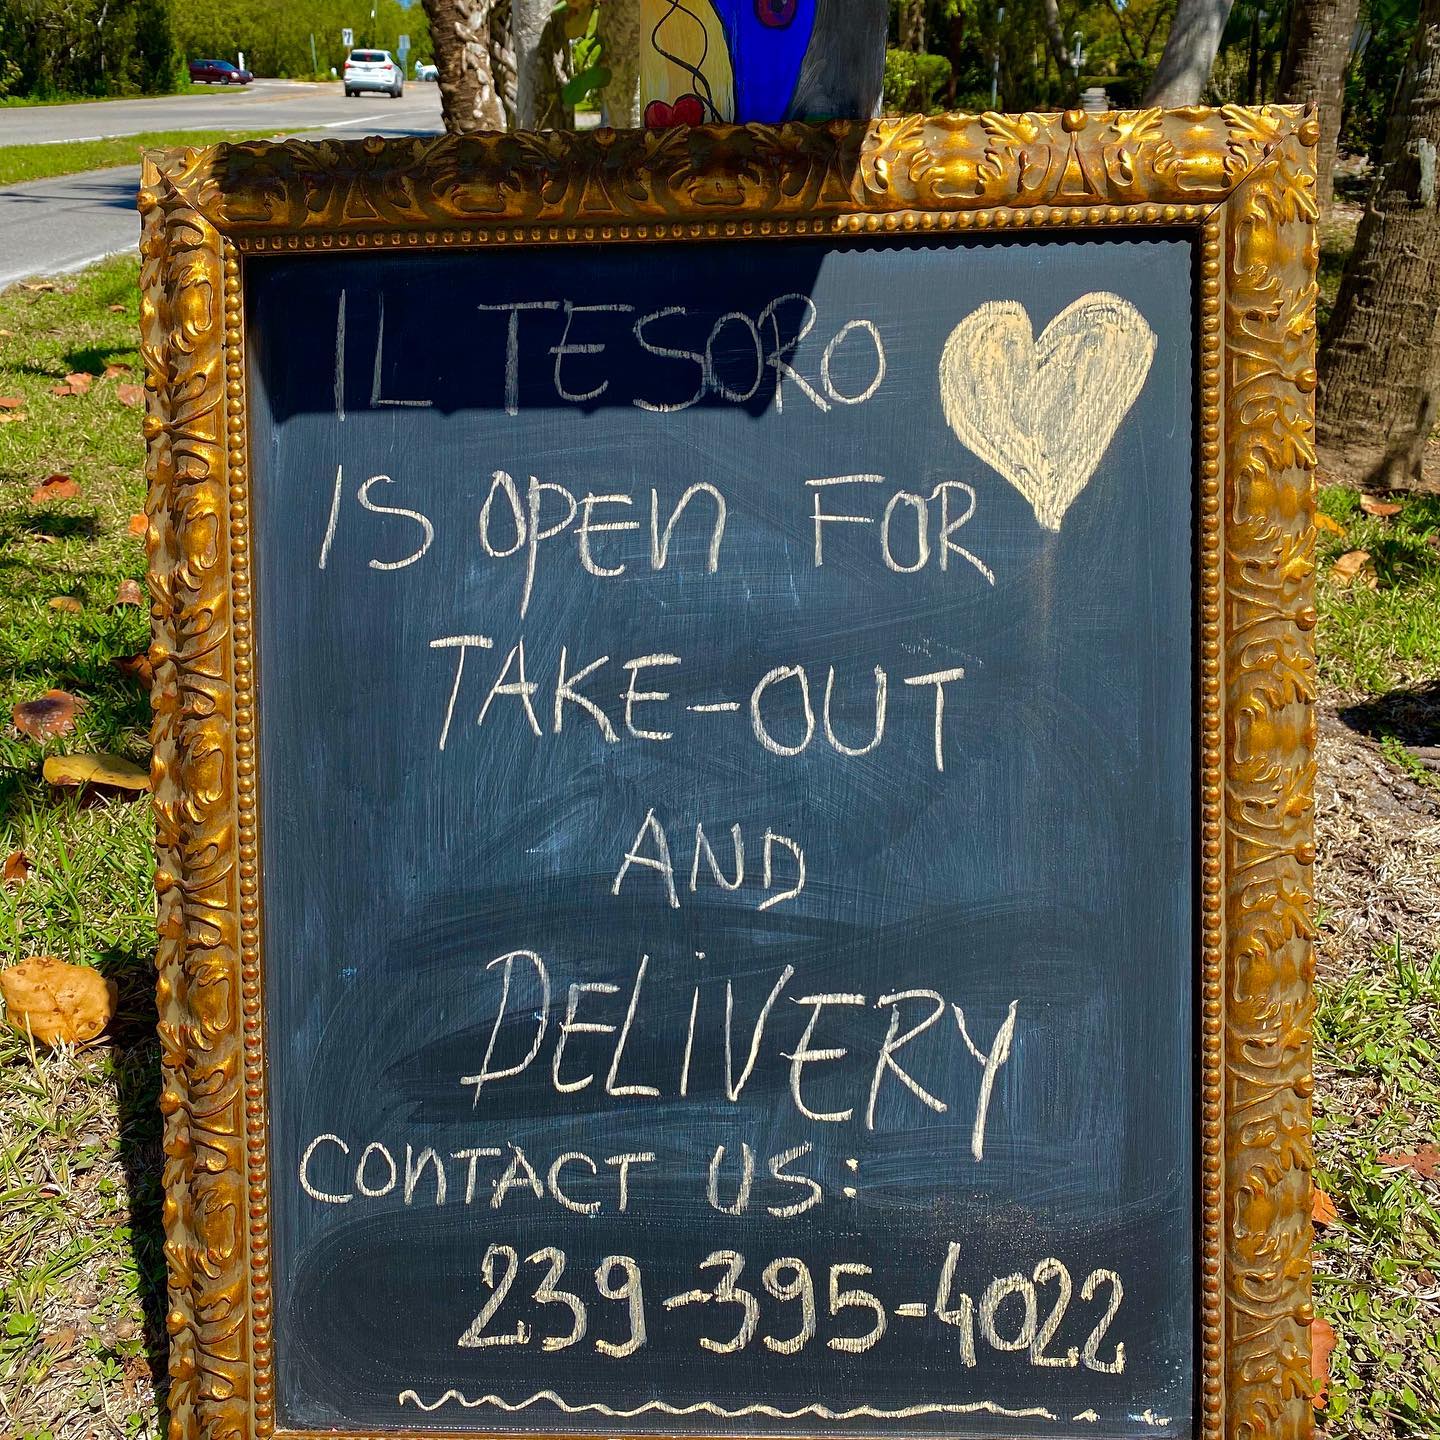 IL TESORO
IS OPEN FOR
TAKE-OUT
AND
DELIVERY
CONTACT US:
239-395-4022